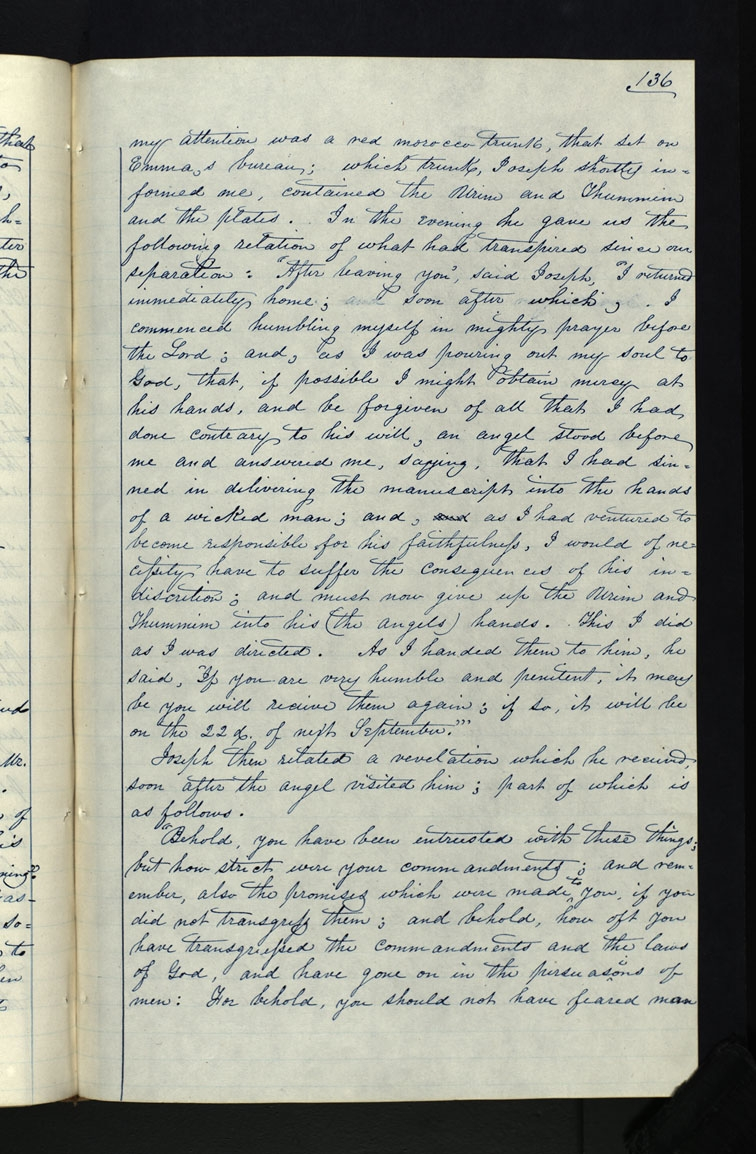 136
my attention was a red morocco trunk, that set on
Emma,s bureau; which trunk, Joseph shortly in=
formed me, contained the Urim and Thummim
and the plates. In the evening he gave us the
following relation of what had transpired since our
separation: "After leaving you", said Joseph, "I returned
immediately home; soon after which, . I
commenced humbling myself in mighty prayer before
the Lord; and, as I was pouring out my soul to
God, that, if possible I might obtain mercy at
his hands, and be forgiven of all that I had
done conteary to his will, an angel stood before
me and answered me, saying, that I had sin=
ned in delivering the manuscript into the hands
of a wicked man; and, and as I had ventured to
become responsible for his faithfulness, I would of ne=
cessity have to suffer the consequences of his in=
discretion; and must now give up the Urim and
Thummim into his (the angels) hands. This I did
as I was directed. As I handed them to him, he
said, 'If you are very humble and penitent, it may
be you will recieve them again; if so, it will be
on the 22d. of next September.'"
Joseph then related a revelation which he recieved
soon after the angel visited him; part of which is
as follows.
"Behold, you have been entrusted with these things;
but how strict were your commandments; and rem=
ember, also the promises which were made to you, if you
did not transgress them; and behold, how oft you
have transgressed the commandments and the laws
of God, and have gone on in the persuasions of
men: For behold, you should not have feared man
that
to
h=
ter
the
Mr.
of
his
as-
so=
to